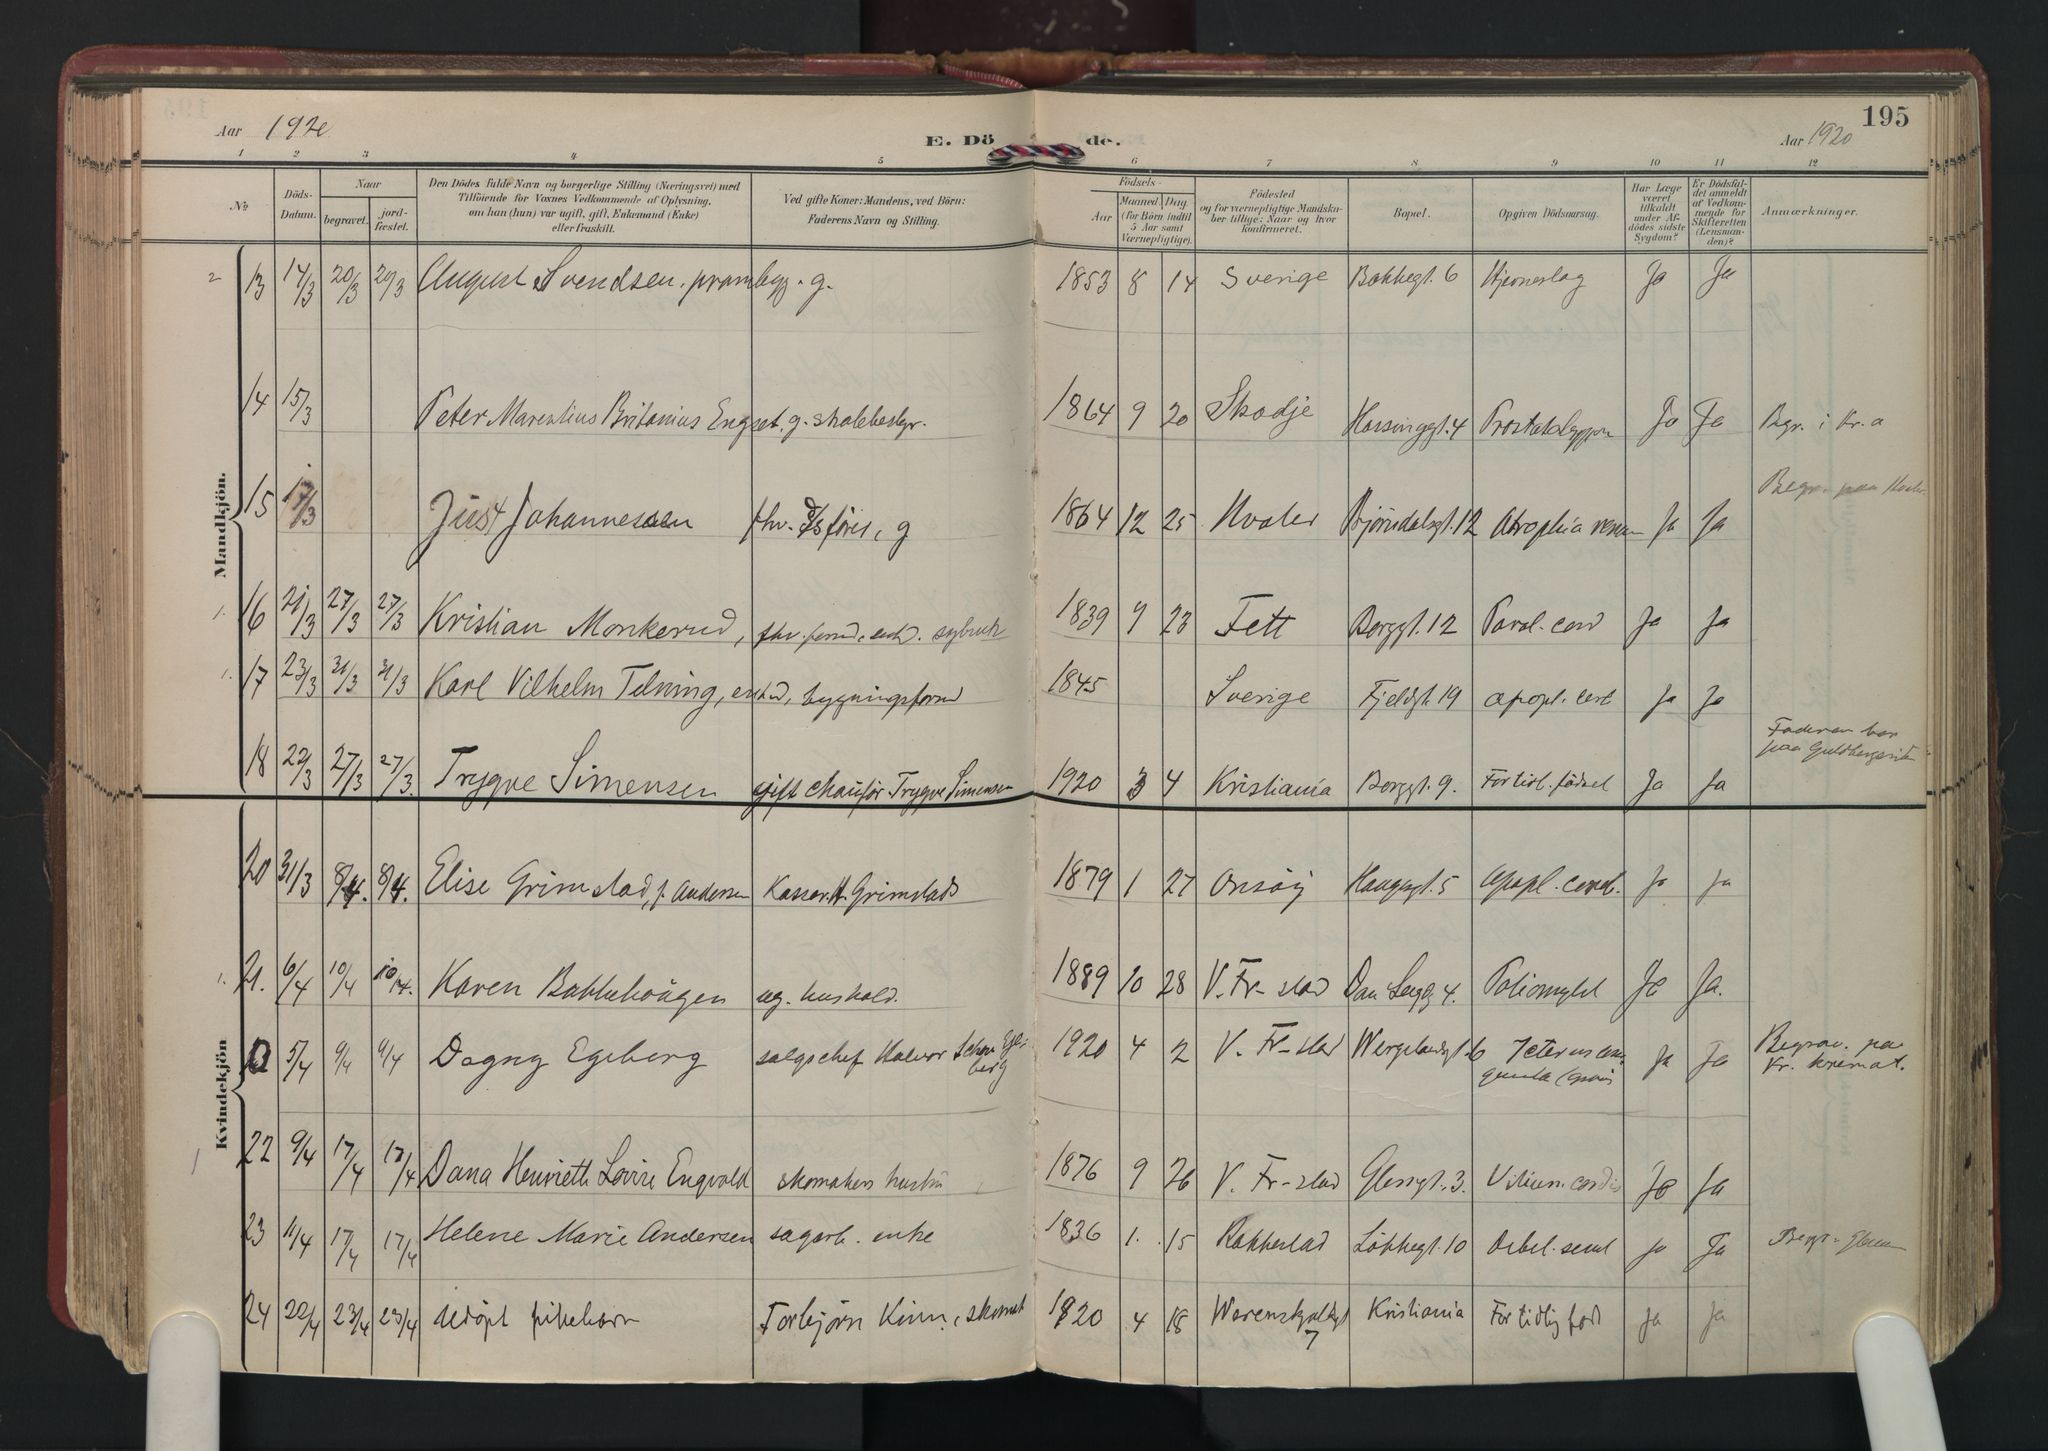 195
Aar 1920
E. Dö de.
Aar 1920
1 2 3 4 5 6 7 8 9 10 11 12
No
Döds-Datum.
Naar
begravet.
jord-fæstet.
Den Dödes fulde Navn og borgerlige Stilling (Næringsvei) med
Tilföiende for Voxnes Vedkommende af Oplysning,
om han (hun) var ugift, gift, Enkemand (Enke)
eller fraskilt.
Ved gifte Koner: Mandens, ved Börn:
Faderens Navn og Stilling.
Födsels-
Aar
Maaned. Dag.
(for Börn indtil
5 Aar samt
Værnepligtige).
Födested
og for værnepligtige Mandska-
ber tillige: Naar og hvor
konfirmeret.
Bopæl.
Opgiven Dödsaarsag.
Har Læge
været
tilkaldt
under Af-
dödes sidste
Sygdom?
Er Dödsfal-
det anmeldt
af Vedkom-
mende for
Skifteretten
(Lensman-
den)?
Anmærkninger.
Mandkjön.
2 13 14/3 20/3 20/3 August Svendsen, prambygg. g. 1853 8 14 Sverige Bakkegt. 6 Hjerneslag Ja Ja
14 15/3 Peter Marentius Britanius Engset, g. skolebestyr. 1864 9 20 Skodje 4 Ja Ja Begr. i Kr.a
15 17/3 Just Johannessen fhv. D/S förer, g 1864 12 25 Hvaler Bjørndalsgt. 12 Atrophia Ja Ja Begr. paa
1. 16 21/3 27/3 27/3 Kristian Monkerud, fhv. form, enk. 1839 9 23 Fett Borggt. 12 Paral. cord Ja Ja
1. 17 23/3 31/3 31/3 Karl Vilhelm Telning, enkm, bygningsformd 1845 Sverige Fjeldgt. 19 apopl. cereb Ja Ja
18 22/3 27/3 27/3. Trygve Simensen gift chaufför Trygve Simensen 1920 3 4 Kristiania Borggt. 9. For tidl. födsel Ja Ja Faderen bor paa
Kvindekjön
20 31/3 8/4. 8/4. Elise Grimstad, f. Andersen Kasser. H. Grimstads 1879 1 27 Onsöy Haugegt. 5 Apopl. cereb. Ja Ja
1. 21. 6/4 10/4 10/4. Karen Bakkehaugen ug. hushold. 1889 10 28 V. Fr-stad 4. Poliomyel Ja Ja.
5/4 9/4 9/4 Dagny Egeberg salgschef Halvor Egeberg 1920 4 2 V. Fr-stad Wergelandsgt. 6 Icterus Ja Ja Begrav. paa Kr. kremat.
22 9/4 17/4 17/4 Dana Henriette Lovise Engvold skomakers hustru 1876 9 26 V. Fr-stad Glemgt. 3. Vitium cordis Ja Ja
23 11/4 17/4 17/4 Helene Marie Andersen sagarb. enke 1836 1. 15 Rakkestad Løkkegt. 10 Debil. senil Ja Ja Begr.
24 22/4 23/4 23/4 Udöpt pikebarn Torbjørn Kinn, skomak 1920 4 18 Werenskjoldsgt 7 Kristiania For tidlig född Ja Ja